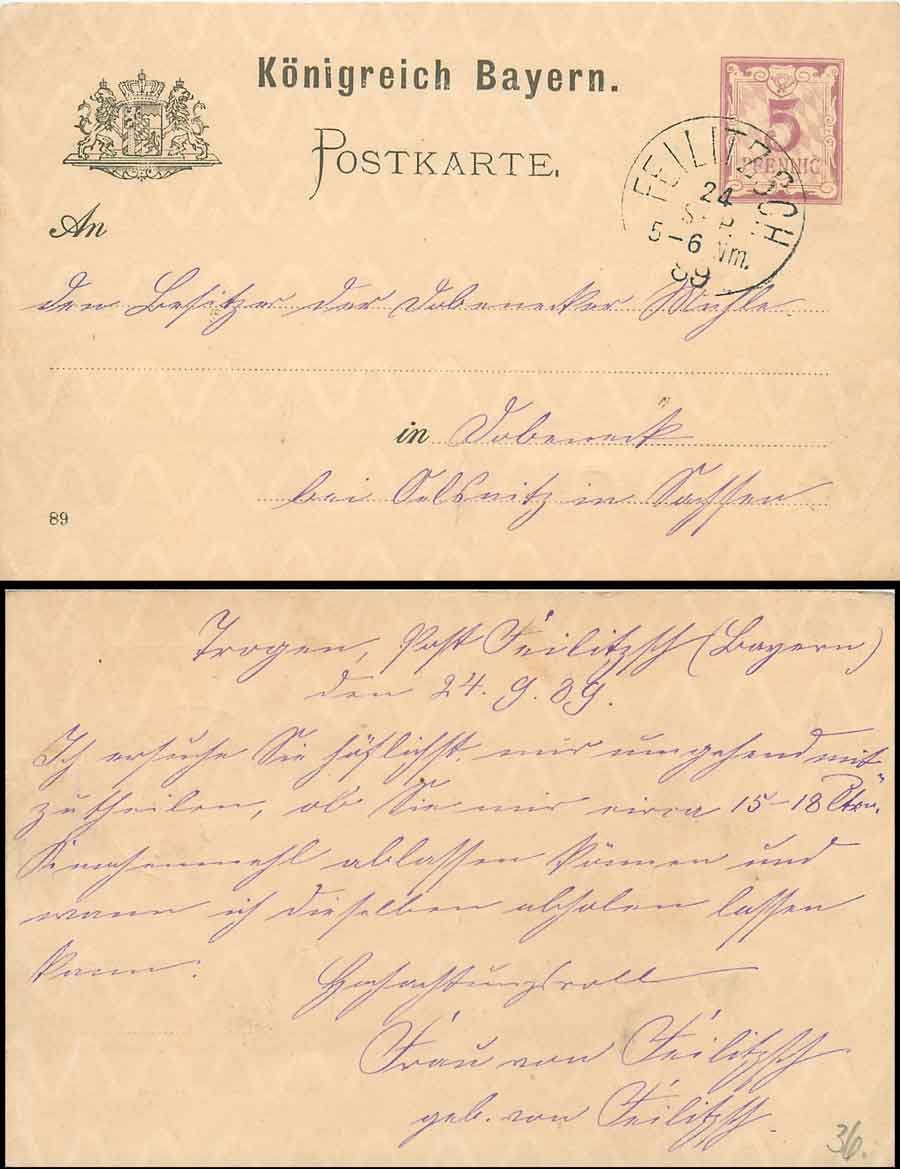 Königreich Bayern.
POSTKARTE.
5
PFENNIG
FEILITZSCH
24
SEP.
5-6 Nm.
89
An
den Besitzer der Dobenecker Mühle
in Dobeneck
bei Oelsnitz in Sachsen
89
Trogen, Post Feilitzsch (Bayern)
den 24. 9. 89.
Ich ersuche Sie höflichst, mir umgehend mit
zutheilen, ob Sie mir circa 15-18 Ctr.
Knochenmehl ablassen können und
wann ich dieselben abholen lassen
kann.
Hochachtungsvoll
Frau von Feilitzsch
geb. von Feilitzsch.
36.